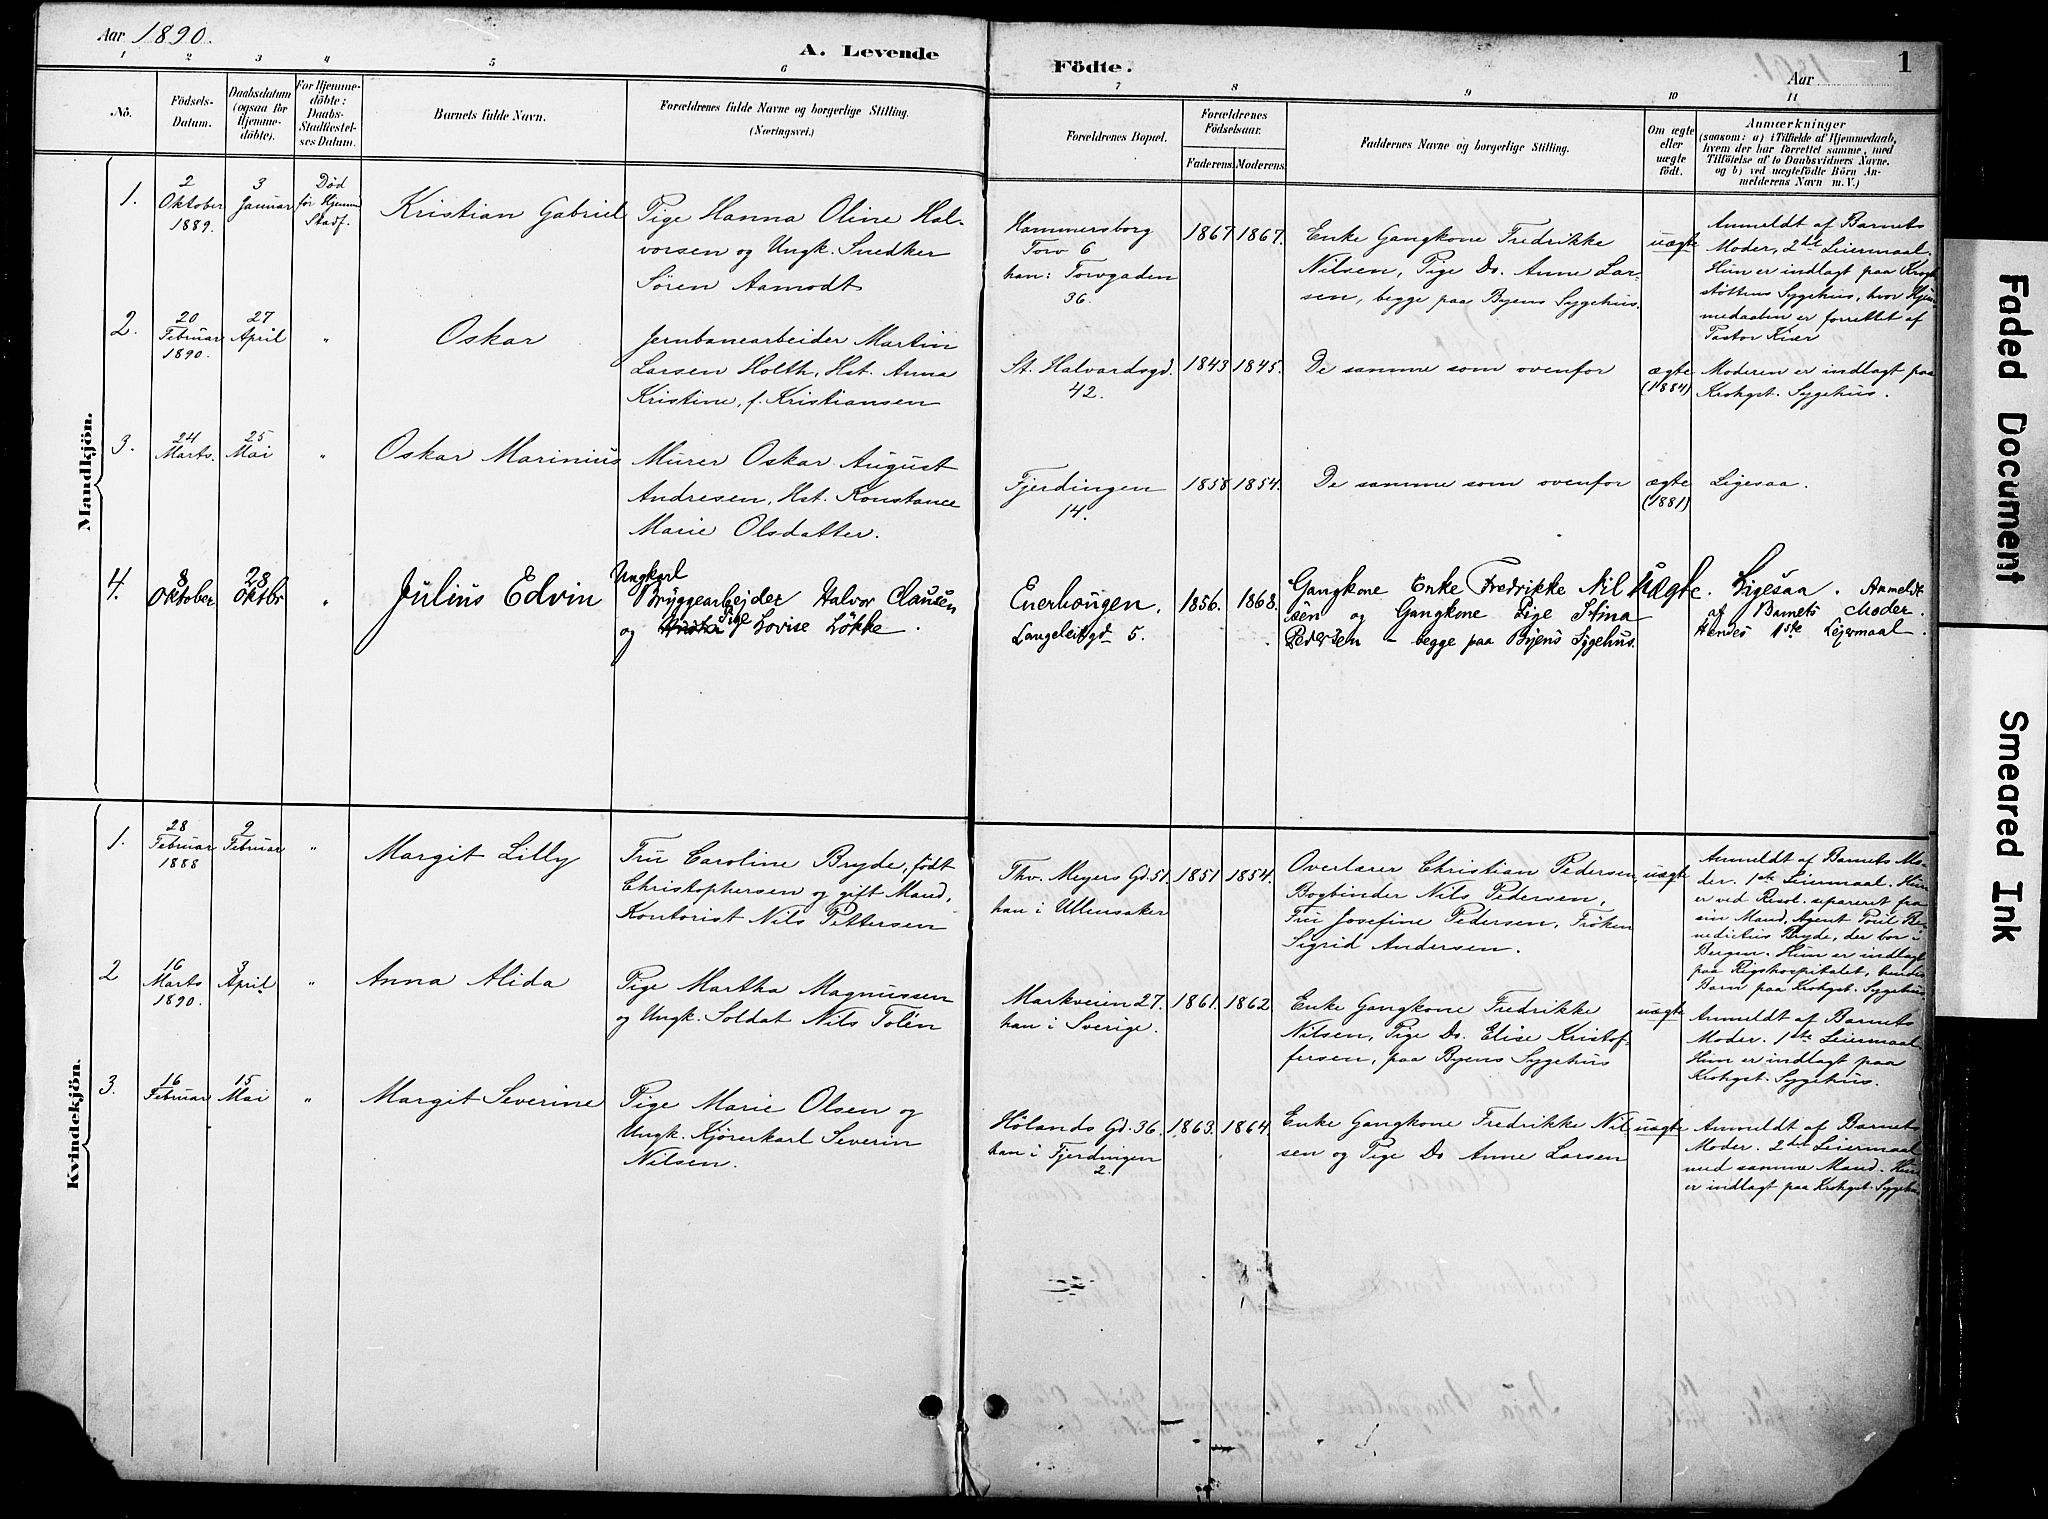 Aar 1890.
A. Levende
Födte.
Aar
1
1 2 3 4 5 6 7 8 9 10 11
No.
Födsels-
Datum.
Daabsdatum
(ogsaa for
Hjemme-
döbte).
For Hjemme-
döbte:
Daabs-
Stadfæstel-
ses Datum.
Barnets fulde Navn.
Forældrenes fulde Navne og borgerlige Stilling.
(Næringsvei.)
Forældrenes Bopæl.
Forældrenes
Födselsaar.
Faderens. Moderens.
Faddernes Navne og borgerlige Stilling.
Om ægte
eller
uægte
födt.
Anmærkninger
(saasom: a) i Tilfælde af Hjemmedaab,
hvem der har forrettet samme, med
Tilföielse af to Daabsvidners Navne.
og b) ved uægtefödte Börn An-
melderens Navn m. V.)
Mandkjön.
1.
2
Oktober
1889.
3
Januar
Død
før Hjemm
Stadf.
Kristian Gabriel
Pige Hanna Oline Hal-
vorsen og Ungk. Snedker
Søren Aamodt
Hammersborg
Torv 6
han: Torvgaden
36.
1867 1867.
Enke Gangkone Fredrikke
Nilsen, Pige Do. Anne Lar-
sen, begge paa Byens Sygehus.
uægte
Anmeldt af Barnets
Moder, 2det Leiermaal.
Hun er indlagt paa Krogh
støttens Sygehus, hvor Hjem
medaaben er forrettet af
Pastor Kiær
2.
20
Februar
1890.
27
April
"
Oskar
Jernbanearbeider Martin
Larsen Holth, Hst. Anna
Kristine, f. Kristiansen
St. Halvardsgd.
42.
1843 1845.
De samme som ovenfor
ægte
(1884)
Moderen er indlagt paa
Krohgst. Sygehus.
3.
24
Marts.
25
Mai
"
Oskar Marinius
Murer Oskar August
Andresen, Hst. Konstance
Marie Olsdatter.
Fjerdingen
14.
1858 1854.
De samme som ovenfor
ægte
(1881)
Ligesaa.
4.
8
Oktober
28
Oktbr
"
Julius Edvin
Ungkarl
Bryggearbejder Halvor Clausen
og Pige Lovise Løkke.
Enerhougen,
Langeleitgd 5.
1856. 1868.
Gangkone Enke Fredrikke Nil
sen og Gangkone Pige Stina
Pedersen - begge paa Byens Sygehus.
Uægte.
Ligesaa. Anmeldt
af Barnets Moder.
Hendes 1ste Lejermaal.
Kvindekjön.
1.
28
Februar
1888
9
Februar
"
Margit Lilly
Fru Caroline Bryde, født
Christophersen og gift Mand,
Kontorist Nils Pettersen
Thv. Meyers Gd. 51.
han i Ullensaker
1851 1854.
Overlærer Christian Pedersen,
Bogbinder Nils Pedersen,
Fru Josefine Pedersen, Frøken
Sigrid Andersen.
uægte
Anmeldt af Barnets Mo-
der. 1ste Leiermaal. Hun
er ved Resol. separeret fra
sin Mand, Agent Poul Be-
nedictus Bryde, der bor i
Bergen. Hun er indlagt
paa Rigshospitalet, hendes
Barn paa Krohgst. Sygehus.
2
16
Marts
1890.
3
April
"
Anna Alida
Pige Martha Magnussen
og Ungk. Soldat Nils Tolén
Markveien 27.
han i Sverige.
1861. 1862
Enke Gangkone Fredrikke
Nilsen, Pige Do. Elise Kristof-
fersen, paa Byens Sygehus
uægte
Anmeldt af Barnets
Moder. 1ste Leiermaal
Hun er indlagt paa
Krohgst. Sygehus.
3.
16
Februar
15
Mai
"
Margit Severine
Pige Marie Olsen og
Ungk. Kjørerkarl Severin
Nilsen.
Hølands Gd. 36.
han i Fjerdingen
2.
1863. 1864.
Enke Gangkone Fredrikke Nil
sen og Pige Do Anne Larsen
uægte
Anmeldt af Barnets
Moder. 2det Leiermaal
med samme Mand. Hun
er indlagt paa Krohgst. Sygehus
Faded Document
Smeared Ink